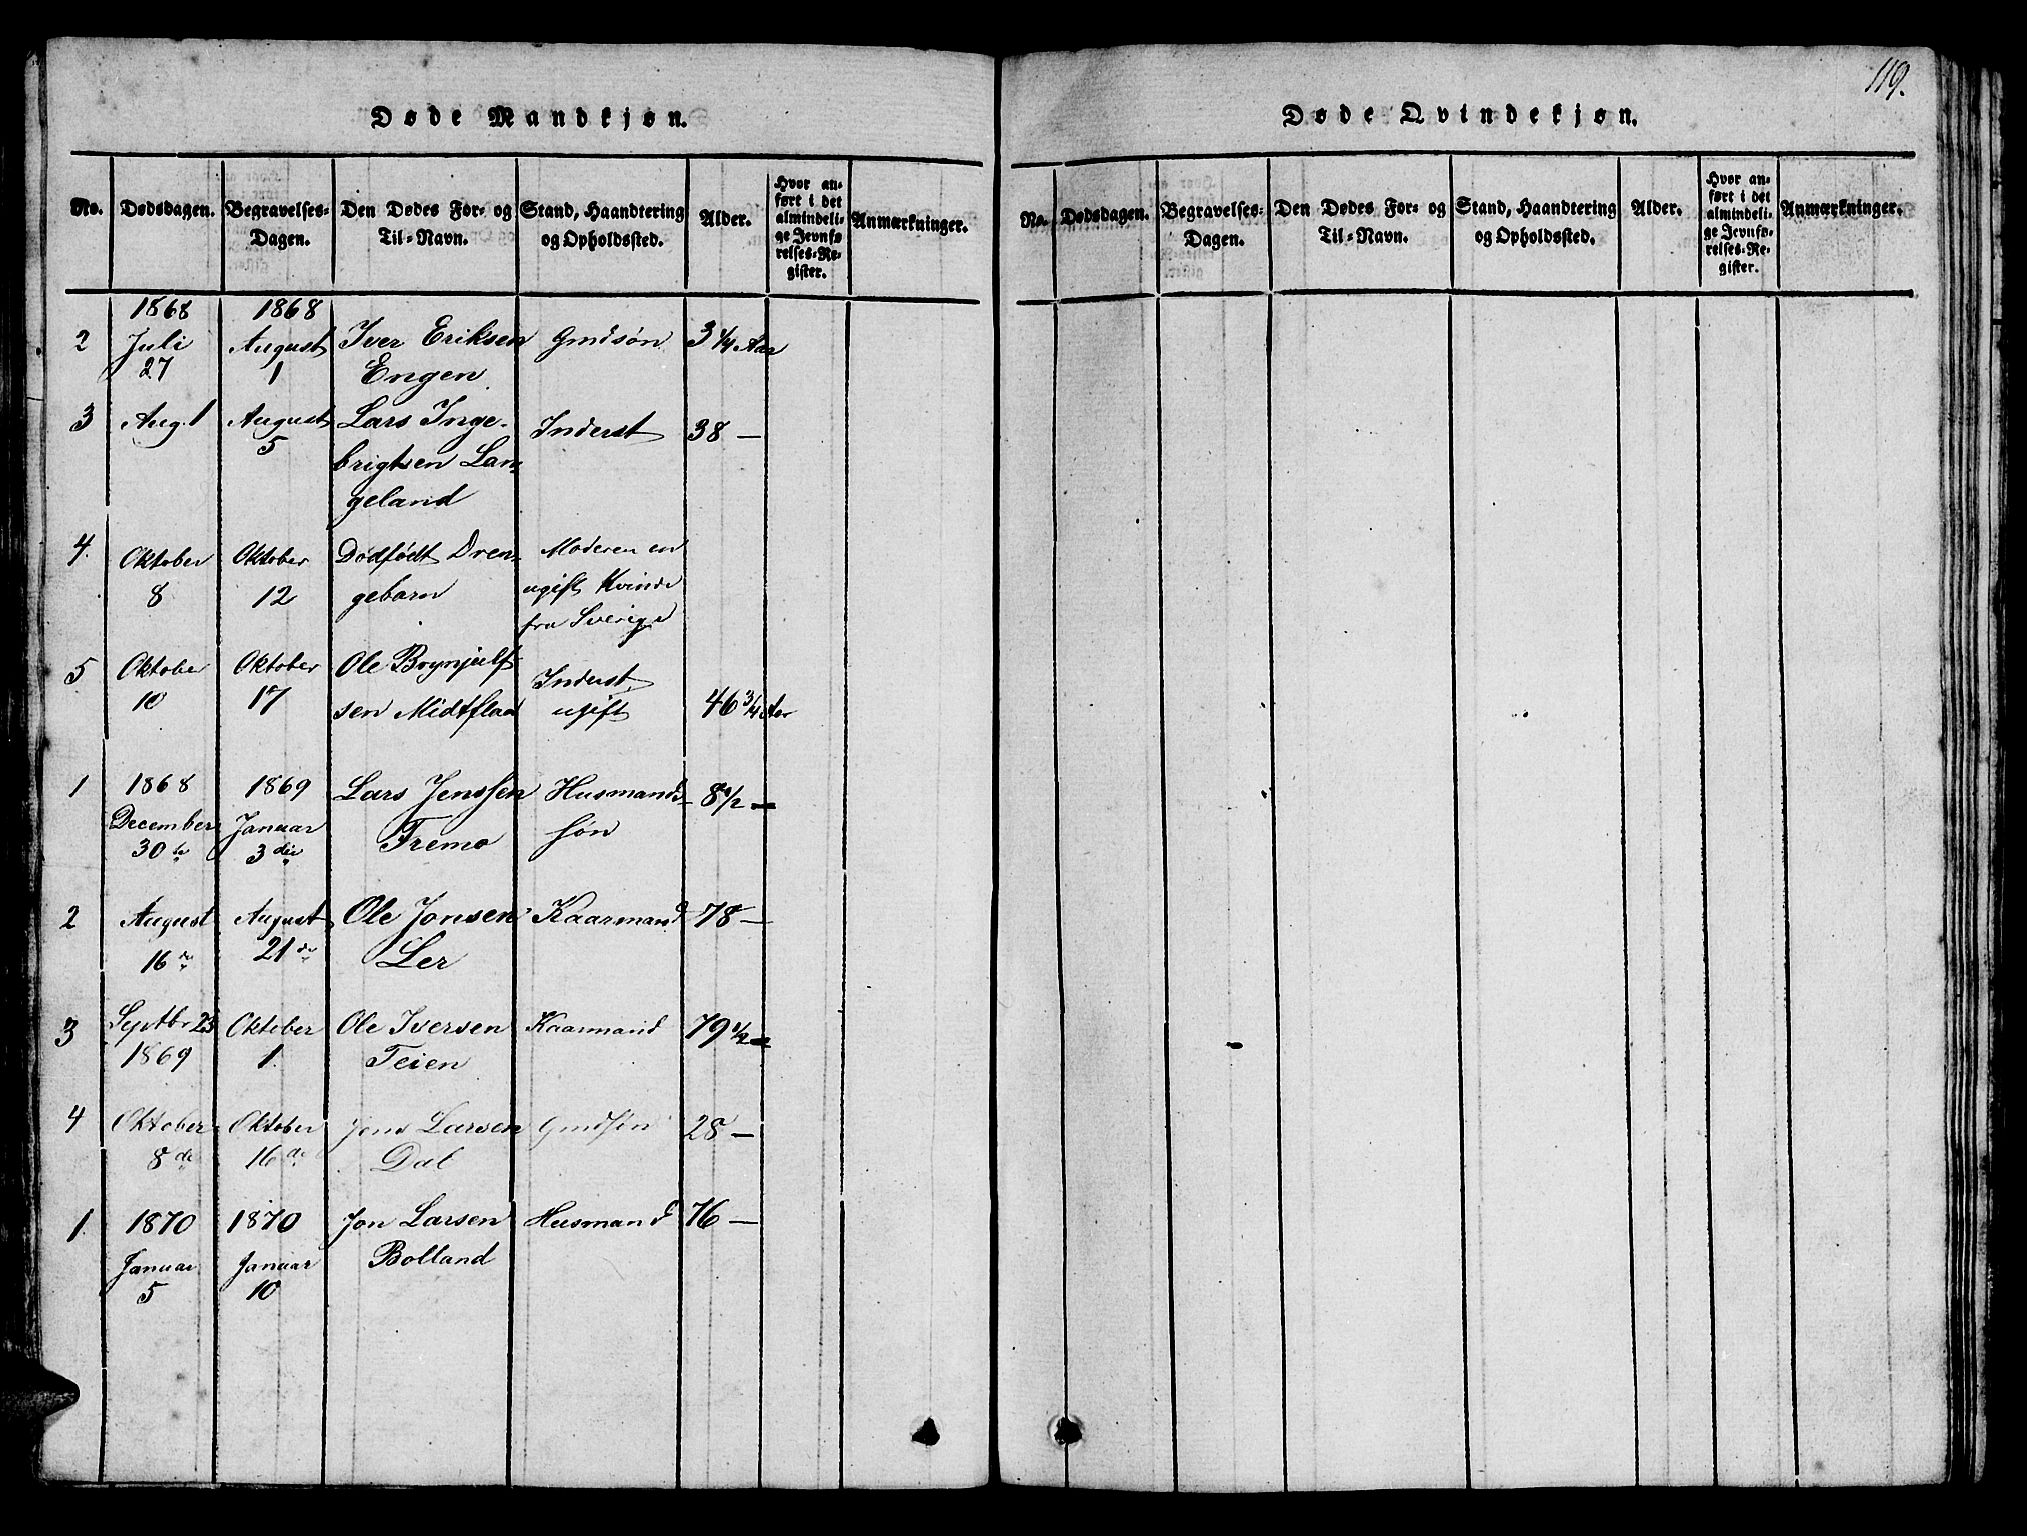 119.
Døde Mandkjøn.
No. Dødsdagen. Begravelses-Dagen. Den Dødes For- og Til-Navn. Stand, Haandtering og Opholdssted. Alder. Hvor anført i det almindelige Jevnførelses-Register. Anmærkninger.
1868 1868
2 Juli August Iver Eriksen Gmdsøn 3 1/4 Aar
27 1 Engen
3 Aug. 1 August Lars Inge- Inderst 38 —
5 brigtsen Lan-
geland
4. Oktober Oktober Dødfødt Dren- Moderen en
8 12 gebarn ugift Kvinde
fra Sverige
5 Oktober Oktober Ole Brynjulf- Inderst
10 17 sen Midtflaa ugift 46 3/4 Aar
1 1868 1869 Lars Jenssen Husmands- 8 1/2 —
December Januar Fremo søn
30te 3die
2 August August Ole Jonsen Kaarmand 78 —
16de 21de Ler
3 Septbr 23 Oktober Ole Iversen Kaarmand 79 1/2 —
1869 1. Teien
4 Oktober Oktober Jens Larsen Gmdsøn 28 —
8de 16de Dal
1. 1870 1870 Jon Larsen Husmand 76 —
Januar Januar Bolland
5 10
Døde Qvindekjøn.
No. Dødsdagen. Begravelses-Dagen. Den Dødes For- og Til-Navn. Stand, Haandtering og Opholdssted. Alder. Hvor anført i det almindelige Jevnførelses-Register. Anmærkninger.